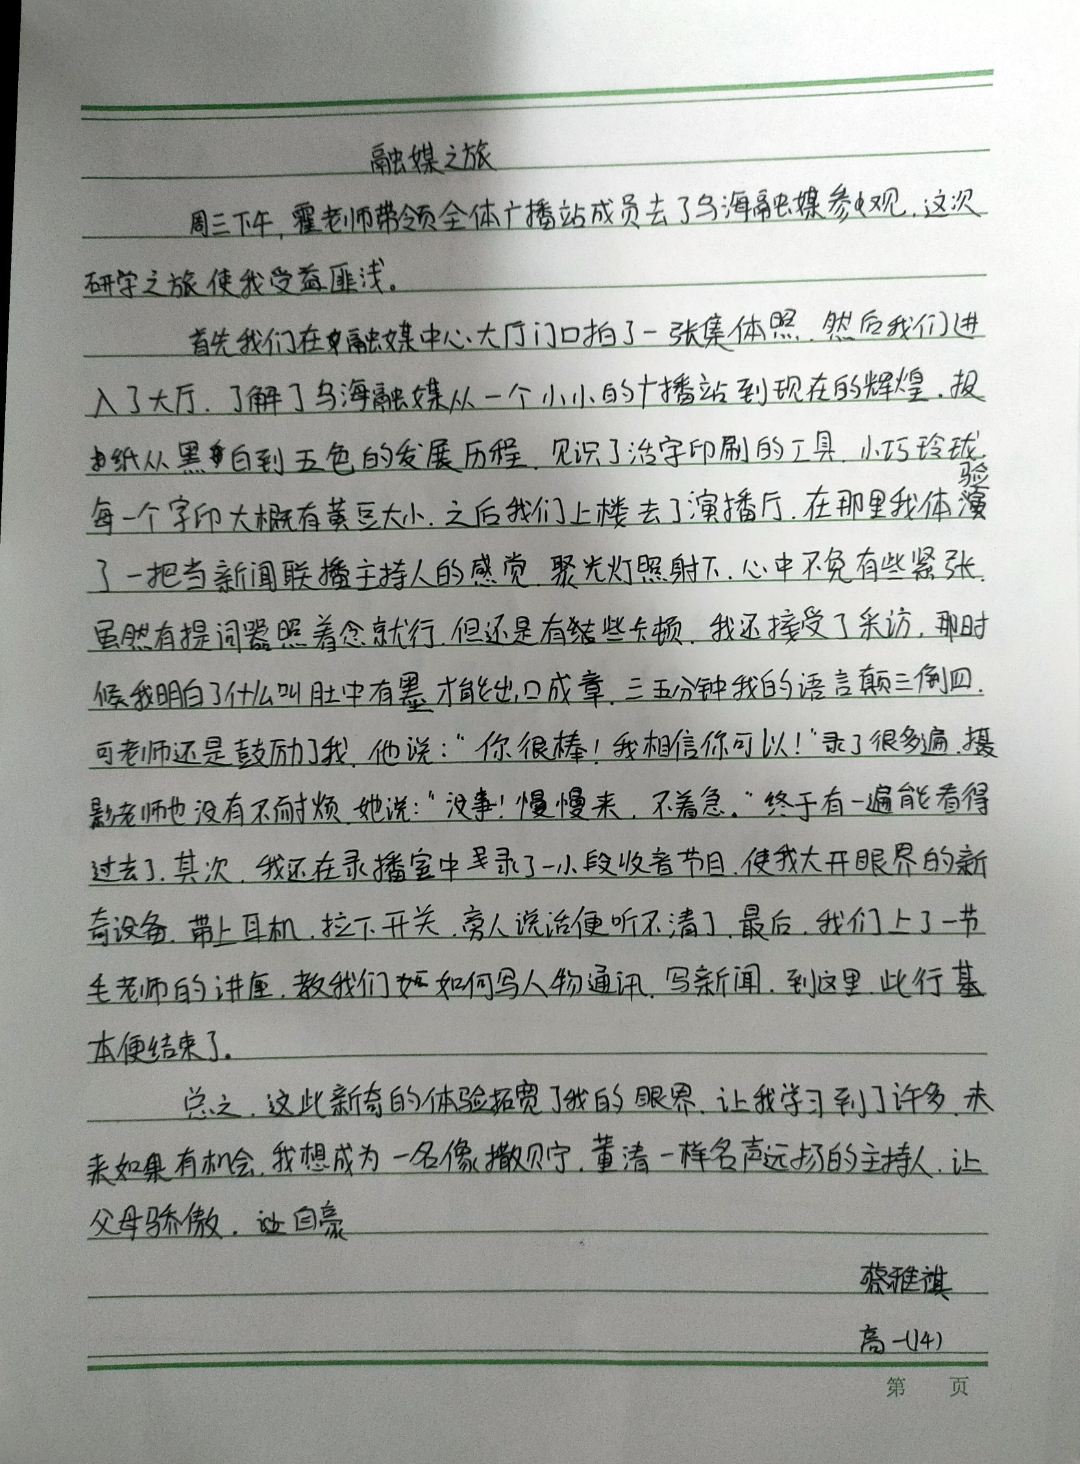 融媒之旅
周三下午,霍老师带领全体广播站成员去了乌海融媒参观,这次
研学之旅使我受益匪浅。
首先我们在融媒中心大厅门口拍了一张集体照,然后我们进
入了大厅,了解了乌海融媒从一个小小的广播站到现在的辉煌,报
纸从黑白到五色的发展历程,见识了活字印刷的工具,小巧玲珑,
每一个字印大概有黄豆大小,之后我们上楼去了演播厅,在那里我体验
了一把当新闻联播主持人的感觉,聚光灯照射下,心中不免有些紧张,
虽然有提词器照着念就行,但还是有些卡顿,我还接受了采访,那时
候我明白了什么叫肚中有墨才能出口成章,三五分钟我的语言颠三倒四,
可老师还是鼓励了我,他说:“你很棒!我相信你可以!”录了很多遍,摄
影老师也没有不耐烦,她说:“没事!慢慢来,不着急。”终于有一遍能看得
过去了,其次,我还在录播室中录了一小段收音节目,使我大开眼界的新
奇设备,带上耳机,拉下开关,旁人说话便听不清了,最后,我们上了一节
毛老师的讲座,教我们如何写人物通讯,写新闻,到这里,此行基
本便结束了。
总之,这些新奇的体验拓宽了我的眼界,让我学习到了许多,未
来如果有机会,我想成为一名像撒贝宁,董清一样名声远扬的主持人,让
父母骄傲,让自豪
蔡雅祺
高一(14)
第 页